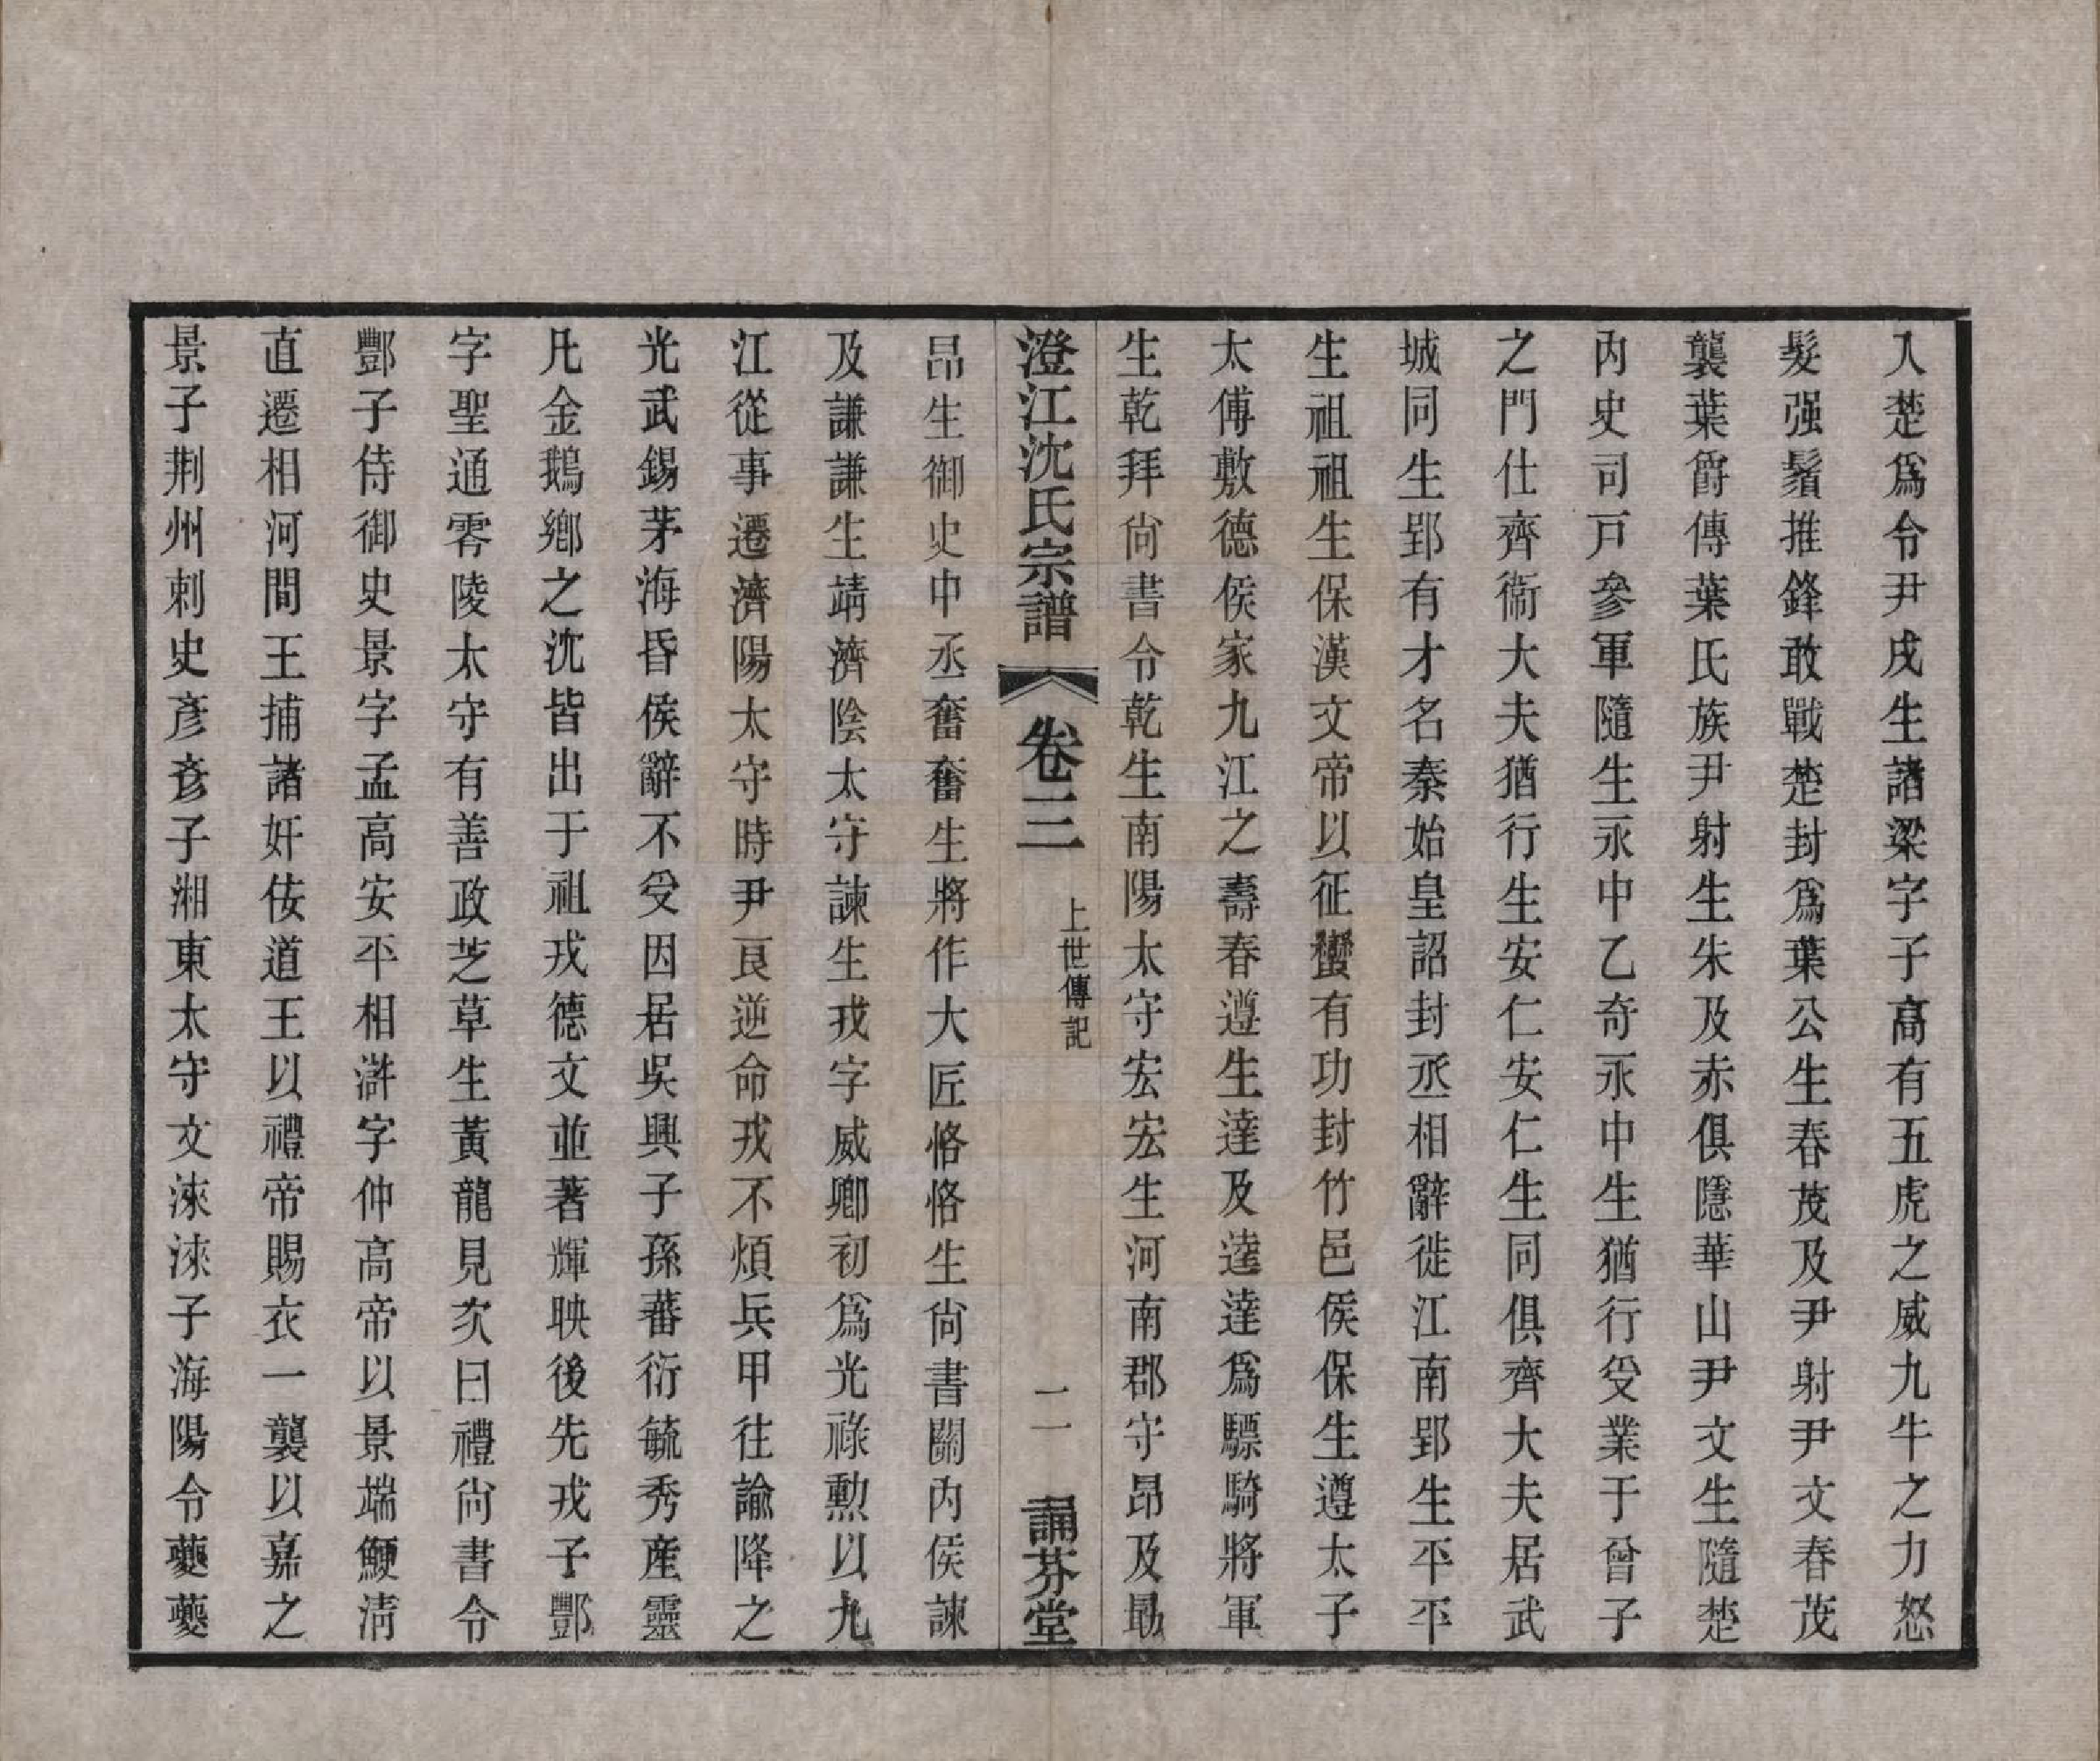 入楚爲令尹戌生諸梁字子高有五虎之威九牛之力怒
髮强鬚推鋒敢戰楚封爲葉公生春茂及尹射尹文春茂
襲葉爵傳葉氏族尹射生朱及赤俱隱華山尹文生隨楚
內史司戸參軍隨生永中乙奇永中生猶行受業于曾子
之門仕齊衞大夫猶行生安仁安仁生同俱齊大夫居武
城同生郢有才名秦始皇詔封丞相辭徙江南郢生平平
生祖祖生保漢文帝以征蠻有功封竹邑侯保生遵太子
太傅敷德侯家九江之壽春遵生達及逵達爲驃騎將軍
生乾拜尙書令乾生南陽太守宏宏生河南郡守昂及勗
澄江沈氏宗譜 卷三 上世傳記 二 誦芬堂
昂生御史中丞奮奮生將作大匠恪恪生尙書關內侯諫
及謙謙生靖濟陰太守諫生戎字威卿初爲光祿勲以九
江從事遷濟陽太守時尹良逆命戎不煩兵甲往諭降之
光武錫茅海昏侯辭不受因居吳興子孫蕃衍毓秀産靈
凡金鵝鄉之沈皆出于祖戎德文並著輝映後先戎子酆
字聖通零陵太守有善政芝草生黃龍見次曰禮尙書令
酆子侍御史景字孟高安平相滸字仲高帝以景端鯁淸
直遷相河間王捕諸奸佞道王以禮帝賜衣一襲以嘉之
景子荆州刺史彥彥子湘東太守文淶淶子海陽令蘷蘷